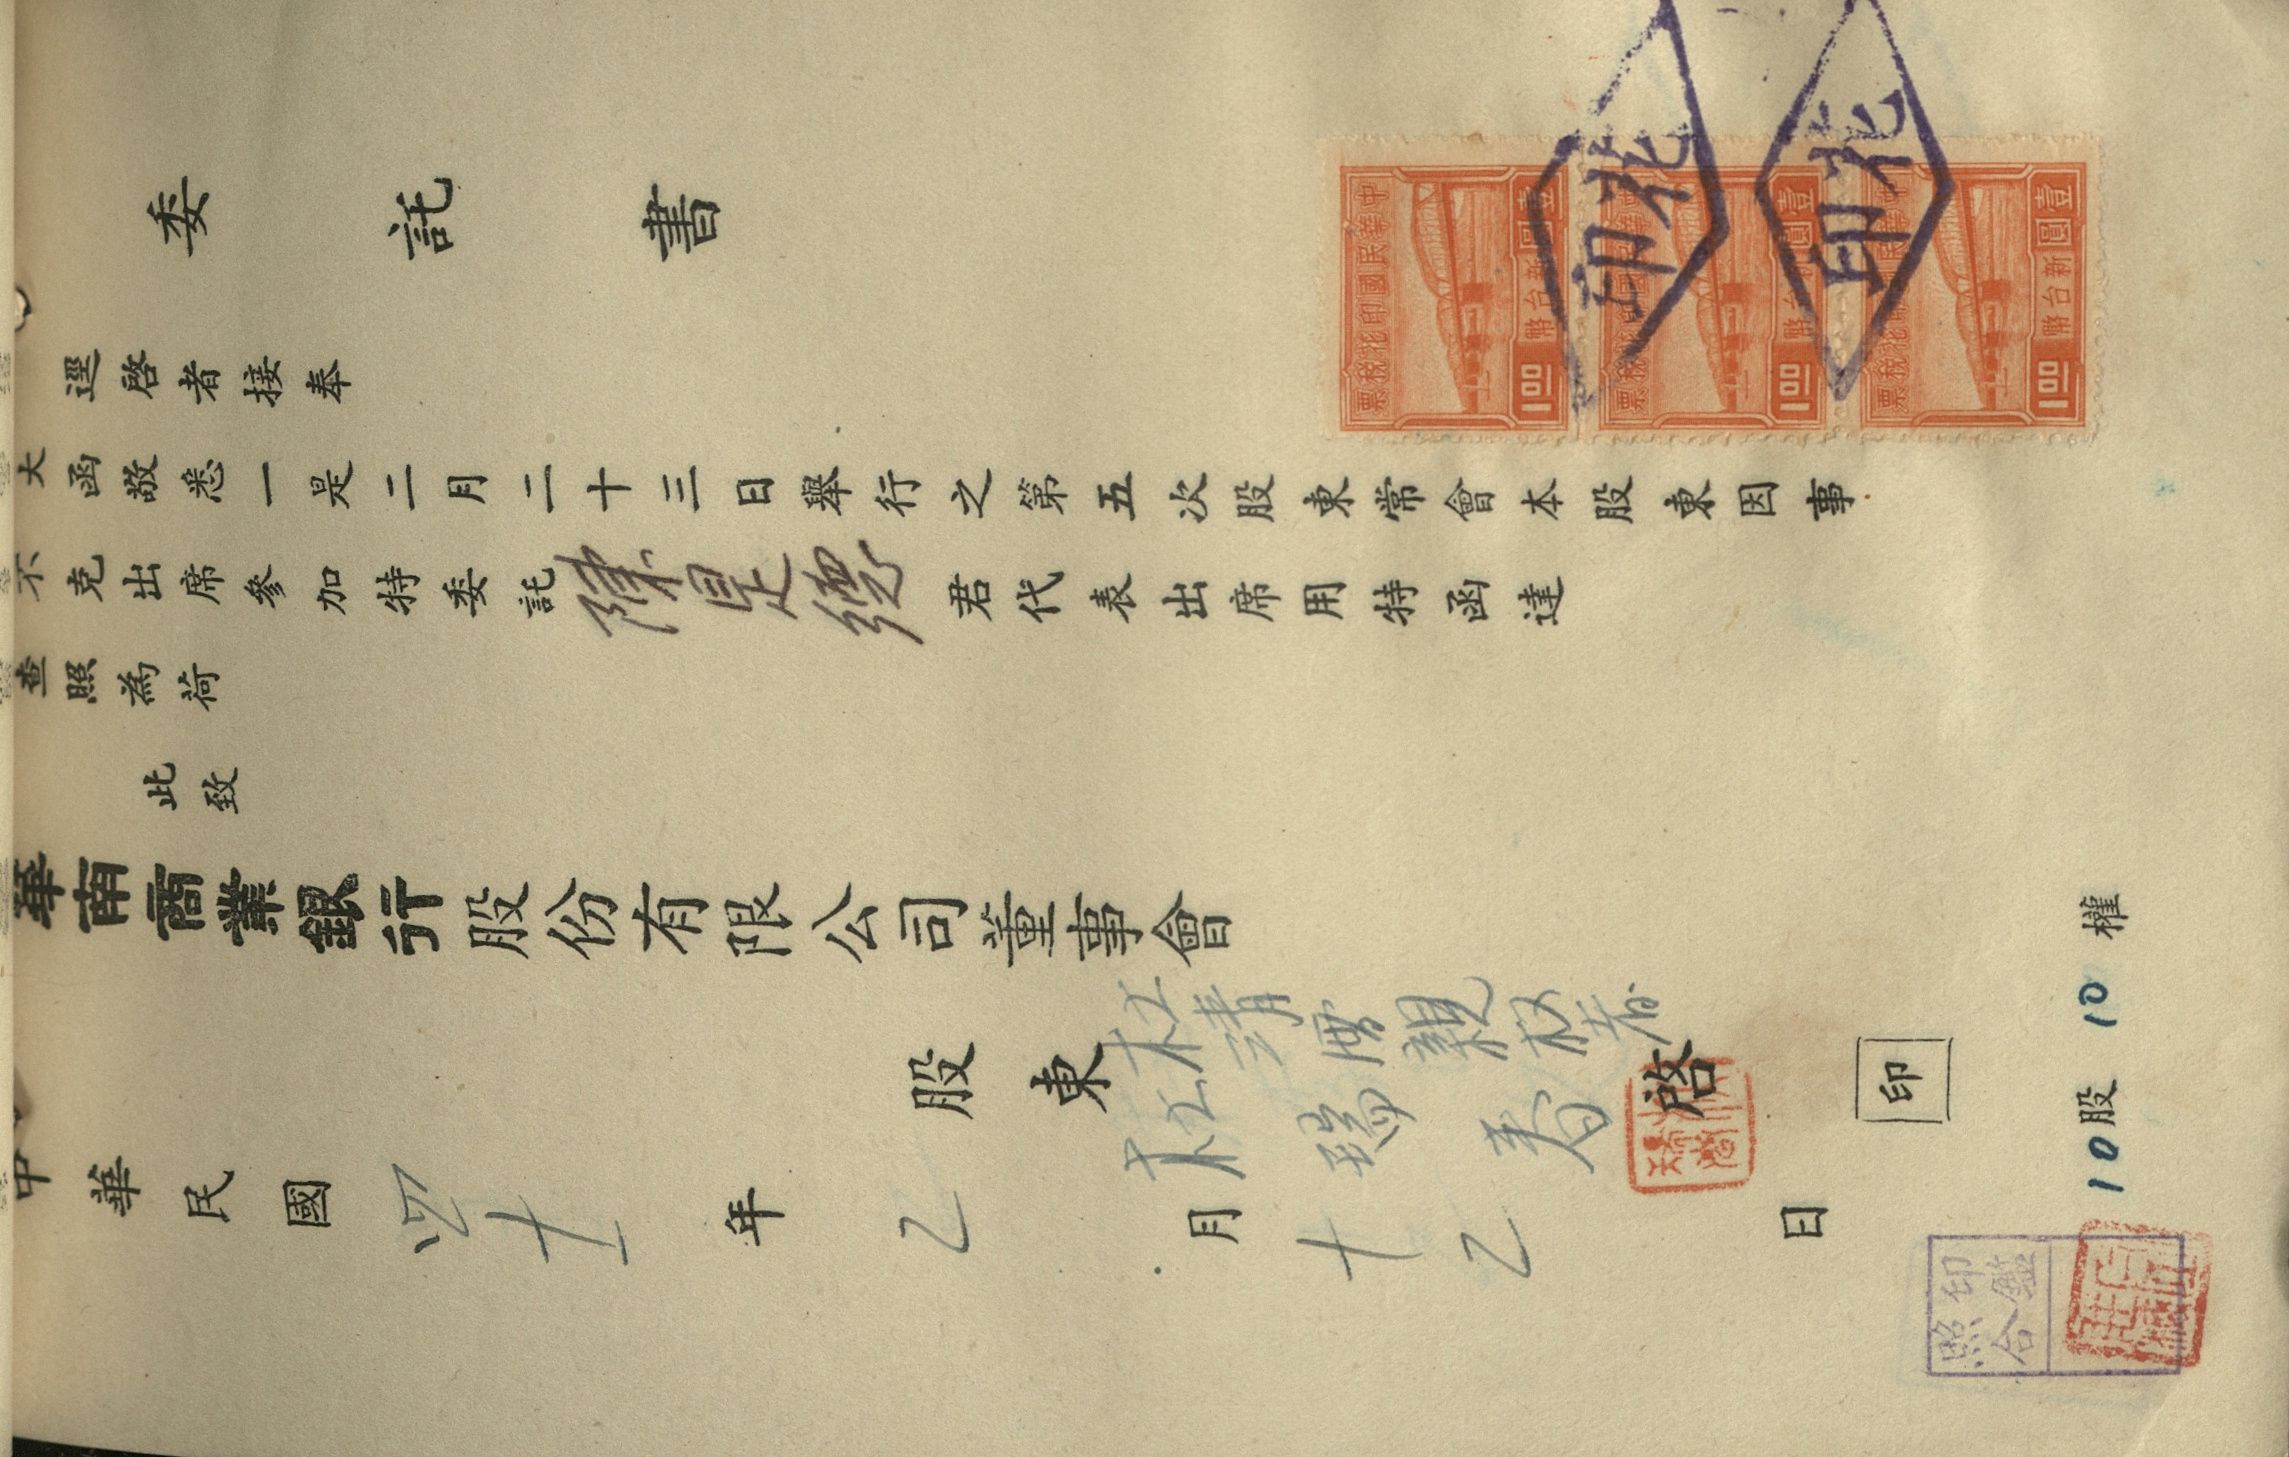 委託書
逕啓者接奉
大函敬悉一是二月二十三日舉行之第五次股東常會本股東因事
不克出席參加特委託陳是德君代表出席用特函達
查照為荷
此致
華南商業銀行股份有限公司董事會
股東
親权者
啓
中華民國四十一年乙月十乙日
印
10股10權
印鑑
照合
中華民國印花稅票
壹圓新台幣
1.00
中華民國印花稅票
壹圓新台幣
1.00
中華民國印花稅票
壹圓新台幣
1.00
印花
印花